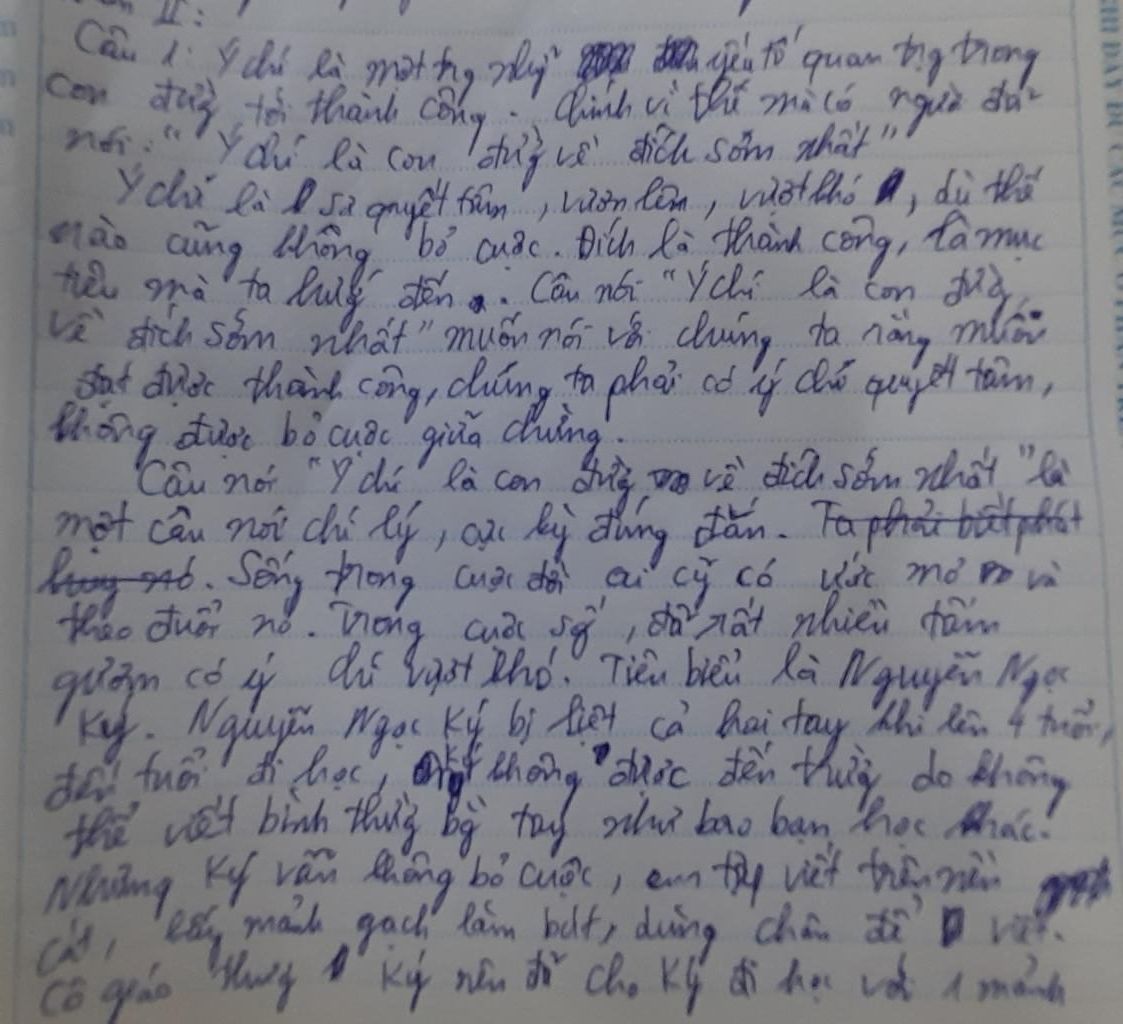 II:
Câu 1: Ý chí là một trg nhữ yếu tố quan trg trong
con đườg tới thành công. Chính vì thế mà có người đã
nói: "Ý chí là con đườg về đích sớm nhất"
Ý chí là sự quyết tâm, vươn lên, vượt khó, dù thế
nào cũng không bỏ cuộc. Đích là thành công, là mục
tiêu mà ta hướg đến. Câu nói "Ý chí là con đườg
về đích sớm nhất" muốn nói với chúng ta rằng muốn
đạt được thành công, chúng ta phải có ý chí quyết tâm,
không được bỏ cuộc giữa chừng.
Câu nói "Ý chí là con đườg về đích sớm nhất" là
một câu nói chí lý, cực kỳ đúng đắn. Ta phải biết phát
huy nó. Sống trong cuộc đời ai cg̃ có ước mơ và
theo đuổi nó. Trong cuộc số, đã rất nhiều tấm
gương có ý chí vượt khó. Tiêu biểu là Nguyễn Ngọc
Ký. Nguyễn Ngọc Ký bị liệt cả hai tay khi lên 4 tuổi,
đến tuổi đi học, không được đến trườg do không
thể viết bình thườg bằg tay như bao bạn học khác.
Nhưng Ký vẫn không bỏ cuộc, em tập viết trên nền
cát, lấy mảnh gạch làm bút, dùng chân để viết.
Cô giáo thươg Ký nên đã cho Ký đi học với 1 mảnh